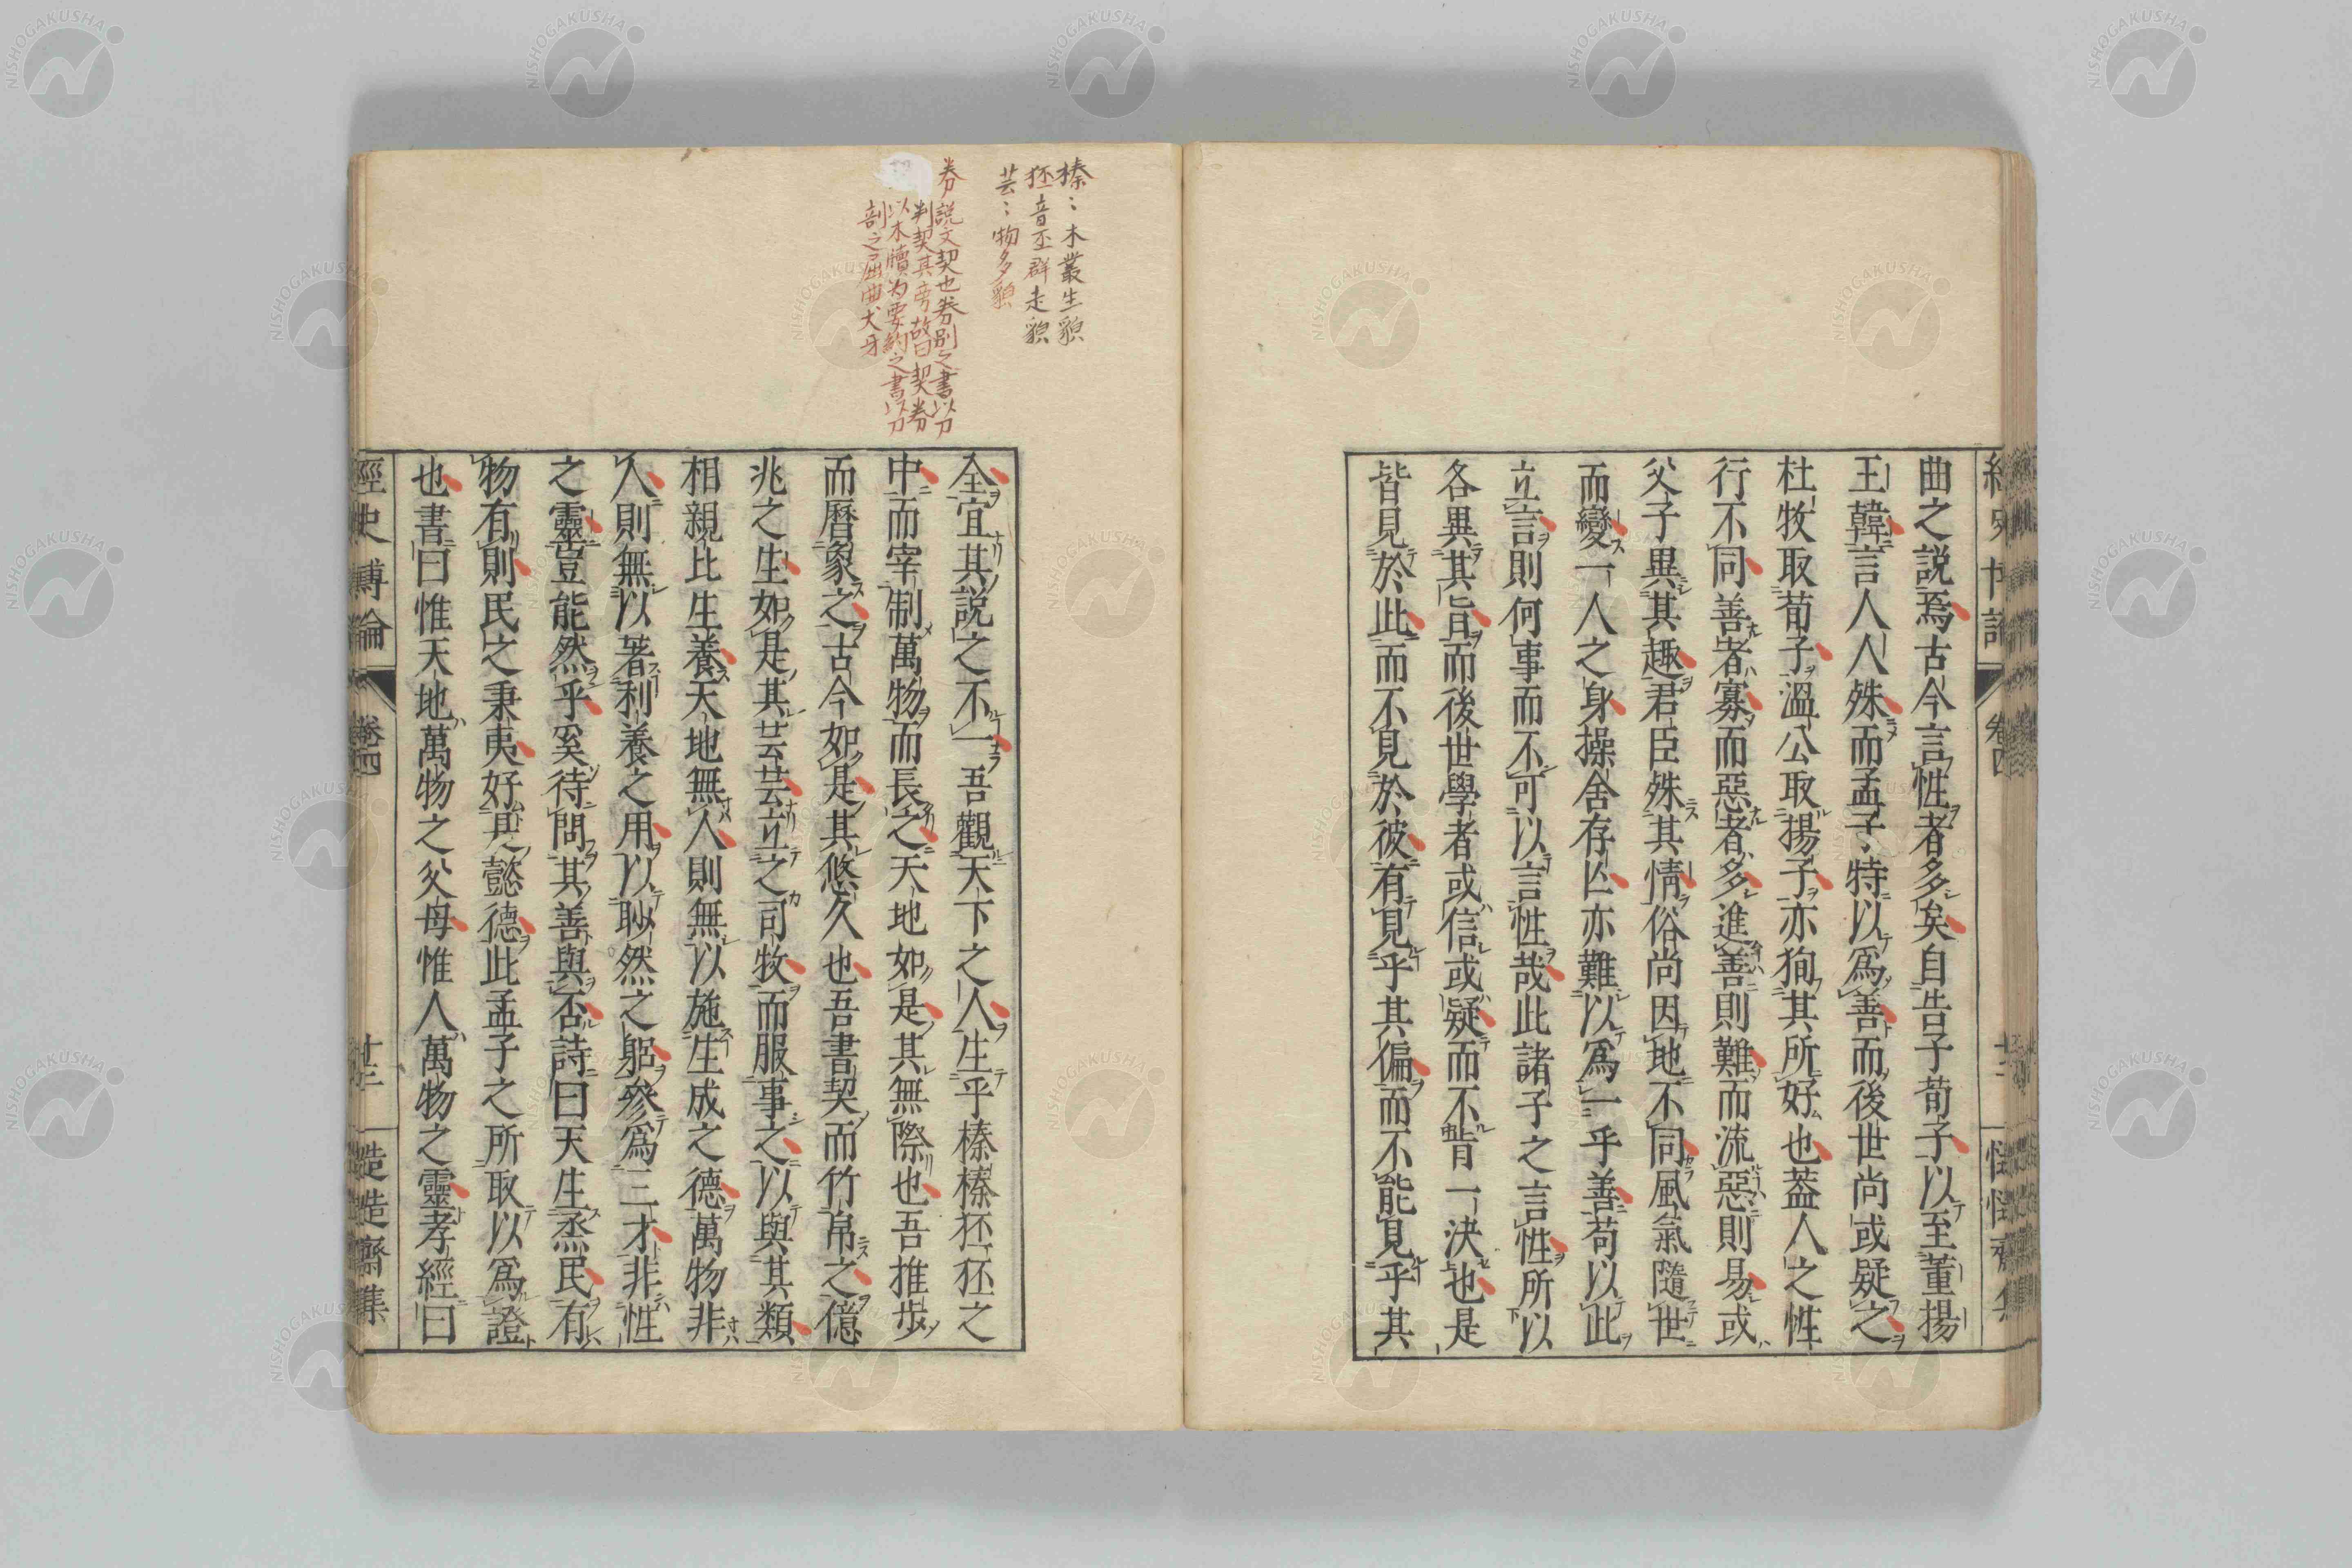 曲之説焉古今言性者多矣自告子荀子以至董揚
王韓言人人殊而孟子特以爲善而後世尚或疑之
杜牧取荀子溫公取揚子亦狥其所好也蓋人之性
行不同善者寡而惡者多進善則難而流惡則易或
父子異其趣君臣殊其情俗尚因地不同風氣隨世
而變一人之身操舍存亾亦難以爲一乎善苟以此
立言則何事而不可以言性哉此諸子之言性所以
各異其旨而後世學者或信或疑而不皆一決也是
皆見於此而不見於彼有見乎其偏而不能見乎其
榛〻木叢生貌
狉音丕群走貌
芸〻物多貌
券 說文契也券别之書以刀
判契其旁故曰契券
以木牘为要約之書以刀
剖之屈曲犬牙
全宜其説之不一吾觀天下之人生乎榛榛狉狉之
中而宰制萬物而長之天地如是其無際也吾推步
而曆象之古今如是其悠久也吾書契而竹帛之億
兆之生如是其芸芸立之司牧而服事之以與其類
相親比生養天地無人則無以施生成之德萬物非
人則無以著利養之用以眇然之躬參爲三才非性
之靈豈能然乎奚待問其善與否詩曰天生烝民有
物有則民之秉夷好其懿德此孟子之所取以爲證
也書曰惟天地萬物之父母惟人萬物之靈孝經曰
經史博論 卷四 十三 慥慥齋集